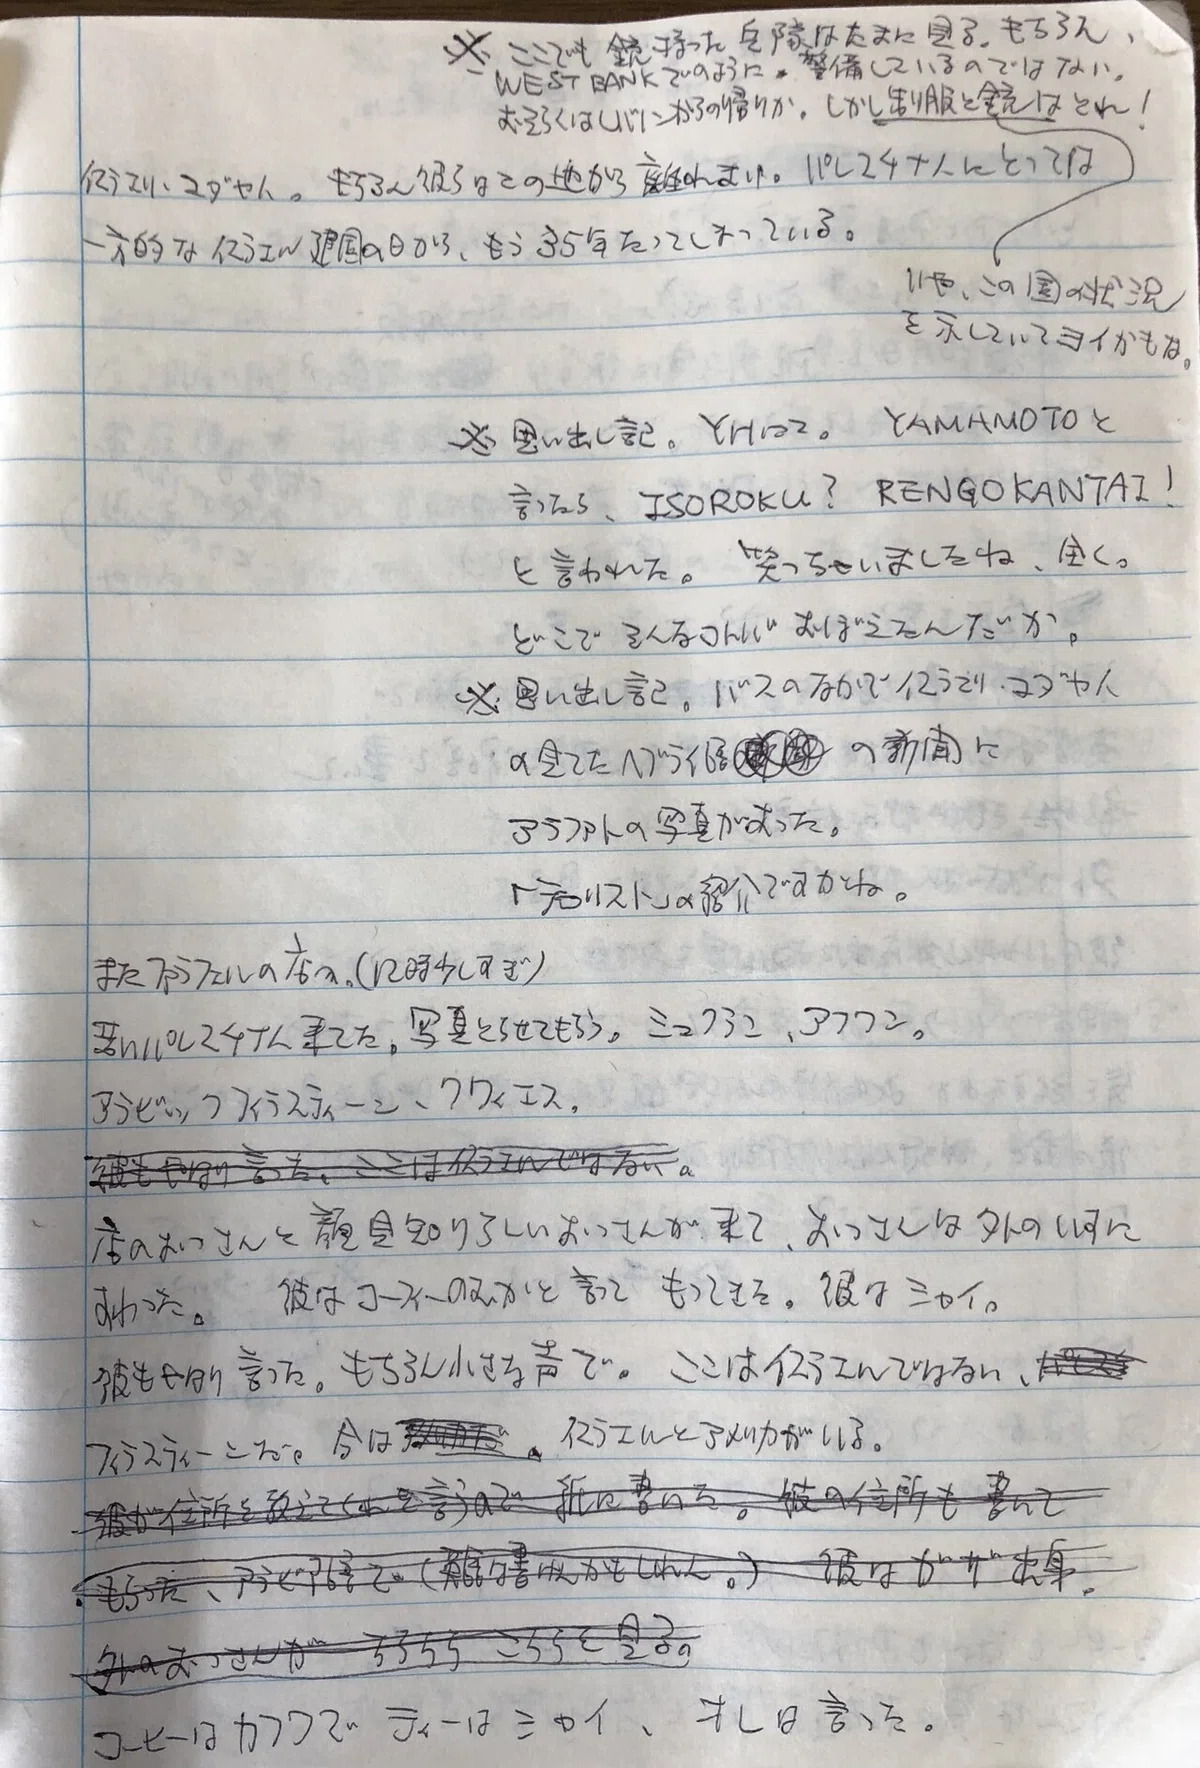 ※ ここでも銃持った兵隊はたまに見る。もちろん、
WEST BANKでのように警備しているのではない。
おそらくはレバノンからの帰りか。しかし制服と銃はとれ!
イスラエリ・ユダヤん。もちろん彼らはこの地から離れまい。パレスチナ人にとっては
一方的なイスラエル建国の日から、もう35年たってしまっている。
いや、この国の状況
を示していてヨイかもな。
※ 思い出し記。YHにて。YAMAMOTOと
言ったら、ISOROKU? RENGOKANTAI!
と言われた。笑っちゃいましたね、全く。
どこでそんなコトバおぼえたんだか。
※ 思い出し記。バスのなかでイスラエリ・ユダヤん
の見てたヘブライ語の新聞に
アラファトの写真があった。
「テロリスト」の紹介ですかね。
またファラフェルの店へ。(12時少しすぎ)
若いパレスチナん来てた。写真とらせてもらう。シュクラン、アフワン。
アラビック フィラスティーン、クウィエス。
彼もやはり言った。ここはイスラエルではない。
店のおっさんと顔見知りらしいおっさんが来て、おっさんは外のいすに
すわった。彼はコーフィーのむかと言って もってきた。彼はシャイ。
彼もやはり言った。もちろん小さな声で。ここはイスラエルではない、
フィラスティーンだ。今は 、イスラエルとアメリカがいる。
彼が住所を教えてくれと言うので紙に書いた。彼の住所も書いて
もらった、アラビア語で。(英語は書けんかもしれん。) 彼はガザ出身。
外のおっさんがちらちらこちらを見る。
コーヒーはカフワで ティーはシャイ、オレは言った。